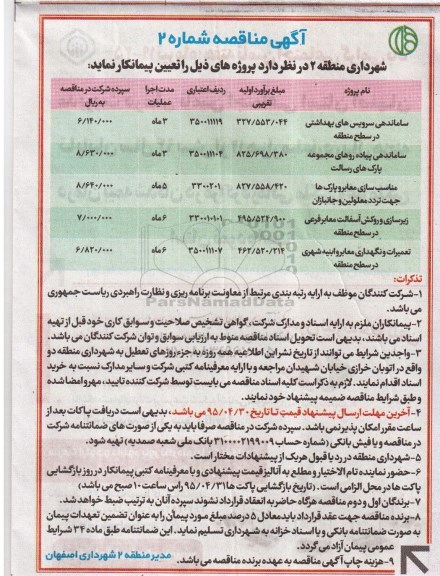 آگهی مناقصه شماره ۲
شهرداری منطقه ۲ در نظر دارد پروژه های ذیل را تعیین پیمانکار نماید:
نام پروژه	مبلغ برآورد اولیه تقریبی	ردیف اعتباری	مدت اجرا عملیات	سپرده شرکت در مناقصه به ریال
ساماندهی سرویس های بهداشتی در سطح منطقه	۳۲۷/۵۵۳/۰۴۴	۳۵۰۰۱۱۱۹	۳ ماه	۶/۱۴۰/۰۰۰
ساماندهی پیاده روهای مجموعه پارک های رسالت	۸۲۵/۶۹۸/۳۸۰	۳۵۰۰۱۱۰۴	۳ ماه	۸/۶۳۰/۰۰۰
مناسب سازی معابر و پارک ها جهت تردد معلولین و جانبازان	۸۲۷/۵۵۸/۴۲۰	۳۳۰۰۲۰۱	۵ ماه	۸/۶۴۰/۰۰۰
زیرسازی و روکش آسفالت معابر فرعی در سطح منطقه	۴۹۵/۵۲۴/۹۰۰	۳۳۰۰۱۰۱۰۱	۶ ماه	۷/۰۰۰/۰۰۰
تعمیرات و نگهداری معابر و ابنیه شهری در سطح منطقه	۴۶۲/۵۲۰/۳۱۴	۳۵۰۰۱۱۰۷	۶ ماه	۶/۸۲۰/۰۰۰
ParsNamadData
تذکرات:
۱- شرکت کنندگان موظف به ارایه رتبه بندی مرتبط از معاونت برنامه ریزی و نظارت راهبردی ریاست جمهوری
می باشد.
۲- پیمانکاران ملزم به ارایه اسناد و مدارک شرکت، گواهی تشخیص صلاحیت و سوابق کاری خود قبل از تهیه
اسناد می باشند، بدیهی است تحویل اسناد مناقصه منوط به ارزیابی سوابق و توان شرکت کنندگان می باشد.
۳- واجدین شرایط می توانند از تاریخ نشر این اطلاعیه همه روزه به جزء روزهای تعطیل به شهرداری منطقه دو
واقع در اتوبان خرازی خیابان شهیدان مراجعه و با ارایه معرفینامه کتبی شرکت و سایر مدارک نسبت به خرید
اسناد اقدام نمایند. لازم به ذکر است کلیه اسناد مناقصه می بایست توسط شرکت کننده تایید، مهر و امضا شده
و طبق شرایط مناقصه ضمیمه پیشنهاد خود نمایند.
۴- آخرین مهلت ارسال پیشنهاد قیمت تا تاریخ ۹۵/۰۴/۳۰ می باشد، بدیهی است دریافت پاکات بعد از
ساعت مقرر امکان پذیر نمی باشد. سپرده شرکت در مناقصه صرفا باید به یکی از صورت های ضمانتنامه شرکت
در مناقصه و یا فیش بانکی (شماره حساب ۳۱۰۰۰۰۲۱۹۹۰۰۹ بانک ملی شعبه صمدیه) تهیه شود.
۵- شهرداری منطقه در رد یا قبول هریک از پیشنهادات مختار است.
۶- حضور نماینده تام الاختیار و مطلع به آنالیز قیمت پیشنهادی و با معرفینامه کتبی پیمانکار در روز بازگشایی
پاکت ها در محل الزامی است. (تاریخ بازگشایی پاکت ها ۹۵/۰۴/۳۱ راس ساعت ۱۰ صبح می باشد)
۷- برندگان اول و دوم مناقصه هرگاه حاضر به انعقاد قرارداد نشوند سپرده آنان به ترتیب ضبط خواهد شد.
۸- برنده مناقصه جهت عقد قرارداد باید معادل ۵ درصد مبلغ مورد پیمان را به عنوان تضمین تعهدات پیمان
به صورت ضمانتنامه بانکی و یا اسناد خزانه به شهرداری تسلیم نماید. این ضمانتنامه طبق ماده ۳۴ شرایط
عمومی پیمان آزاد می گردد.
۹- هزینه چاپ آگهی مناقصه به عهده برنده مناقصه می باشد.
مدیر منطقه ۲ شهرداری اصفهان